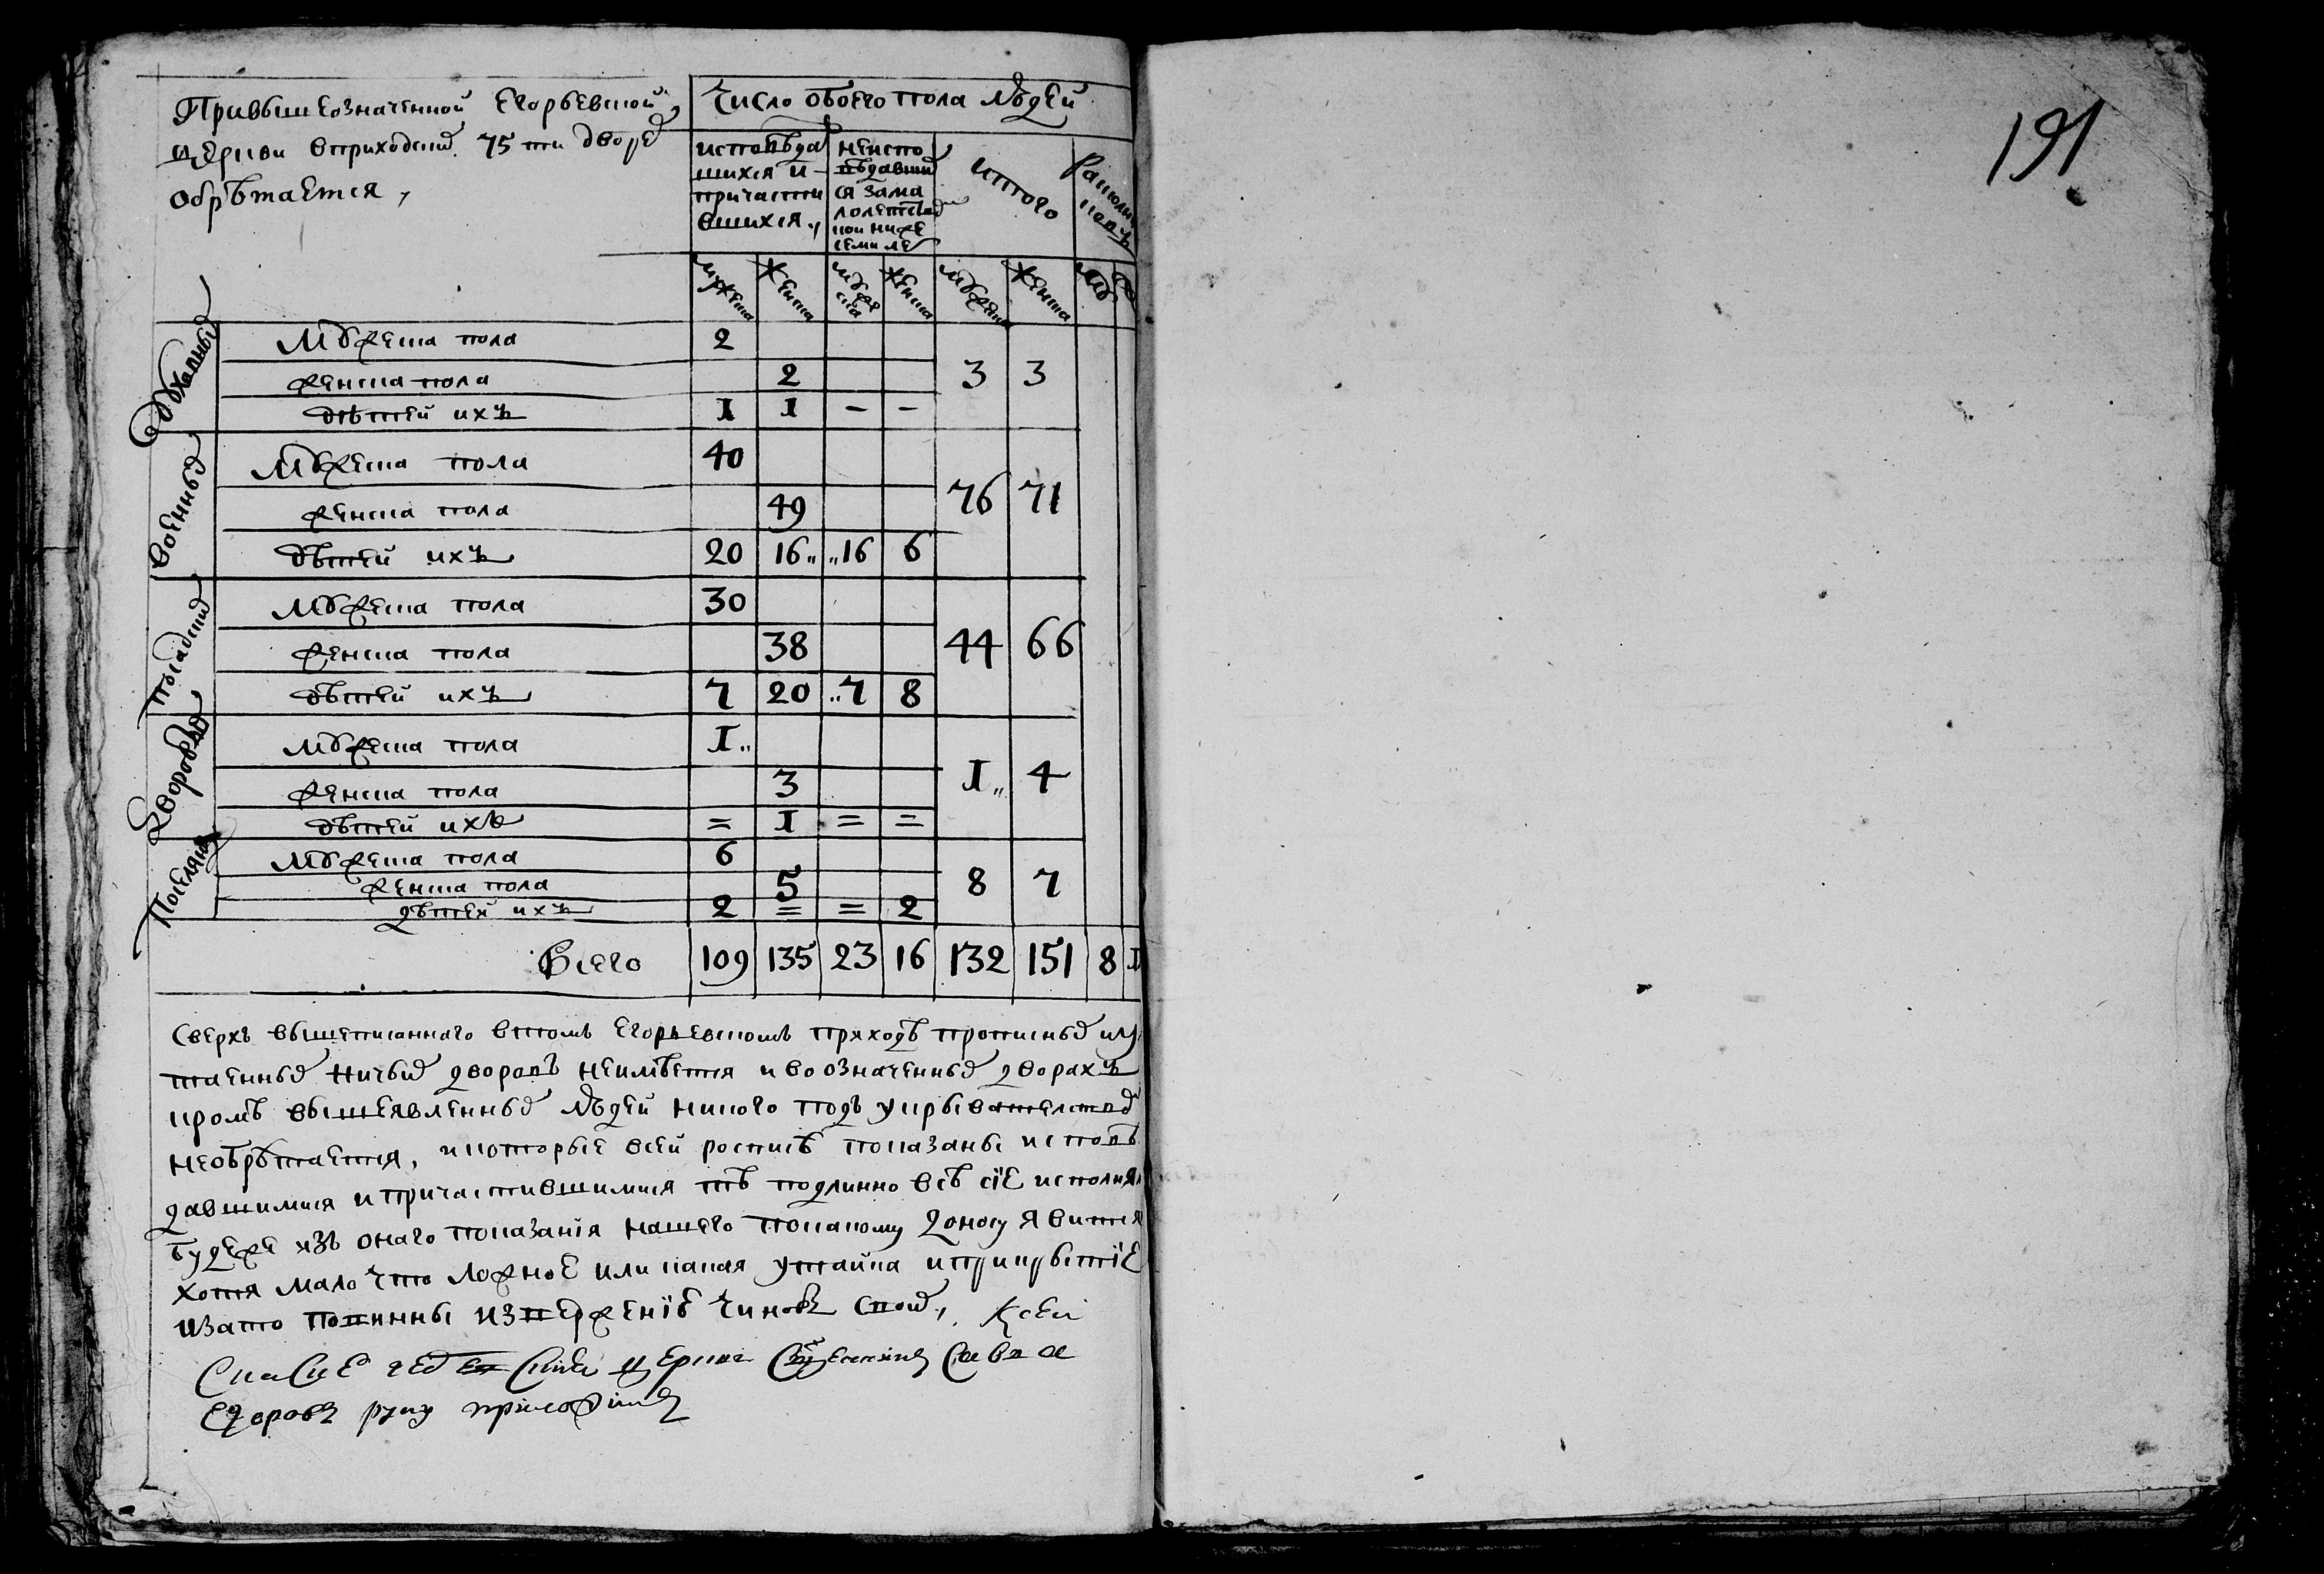 Привышеозначенной Егорьевской
церкви вприходски 75 ти дворе
обрѣтается,
число обоего пола людей
исповѣда
шихся и
причасти
вшихся,
неиспо
вѣдавши
ся зама
лолетст
кои ниже
семи ле
итого
Раскол
никовъ
мужеска
женска
мужес
ска
женска
мужеска
женска
муж
Духовныхъ
мужеска пола 2
женска пола 2 3 3
дѣтей ихъ 1 1 – –
Военныхъ
мужеска пола 40
женска пола 49 76 71
дѣтей ихъ 20 16 16 6
посадски
мужеска пола 30
женска пола 38 44 66
дѣтей ихъ 7 20 7 8
Дворовыхъ
мужеска пола 1
женска пола 3 1 4
дѣтей ихъ = 1 = =
Поселяня
мужеска пола 6
женска пола 5 8 7
дѣтей ихъ 2 = = 2
Всего 109 135 23 16 132 151 8 1
сверхъ вышеписаннаго втомъ Егорьевскомъ приходѣ прописныхъ иу
таенныхъ ничьихъ дворовъ неимѣется и во означенныхъ дворахъ
кромѣ вышеявленныхъ людей никого подъ укрывателствомъ
необрѣтается, и которые всей росписѣ показаны исповѣ
давшимися и причастившимися тѣ подлинно всѣ сіе исполня
будеже изъ онаго показанія нашего покакому доносу явится
хотя мало что ложное или какая утайка и прикрытіе
изато повинны изверженіе чиновъ своихъ, Ксей
церкви Савва
Едоровъ руку приложилъ
191